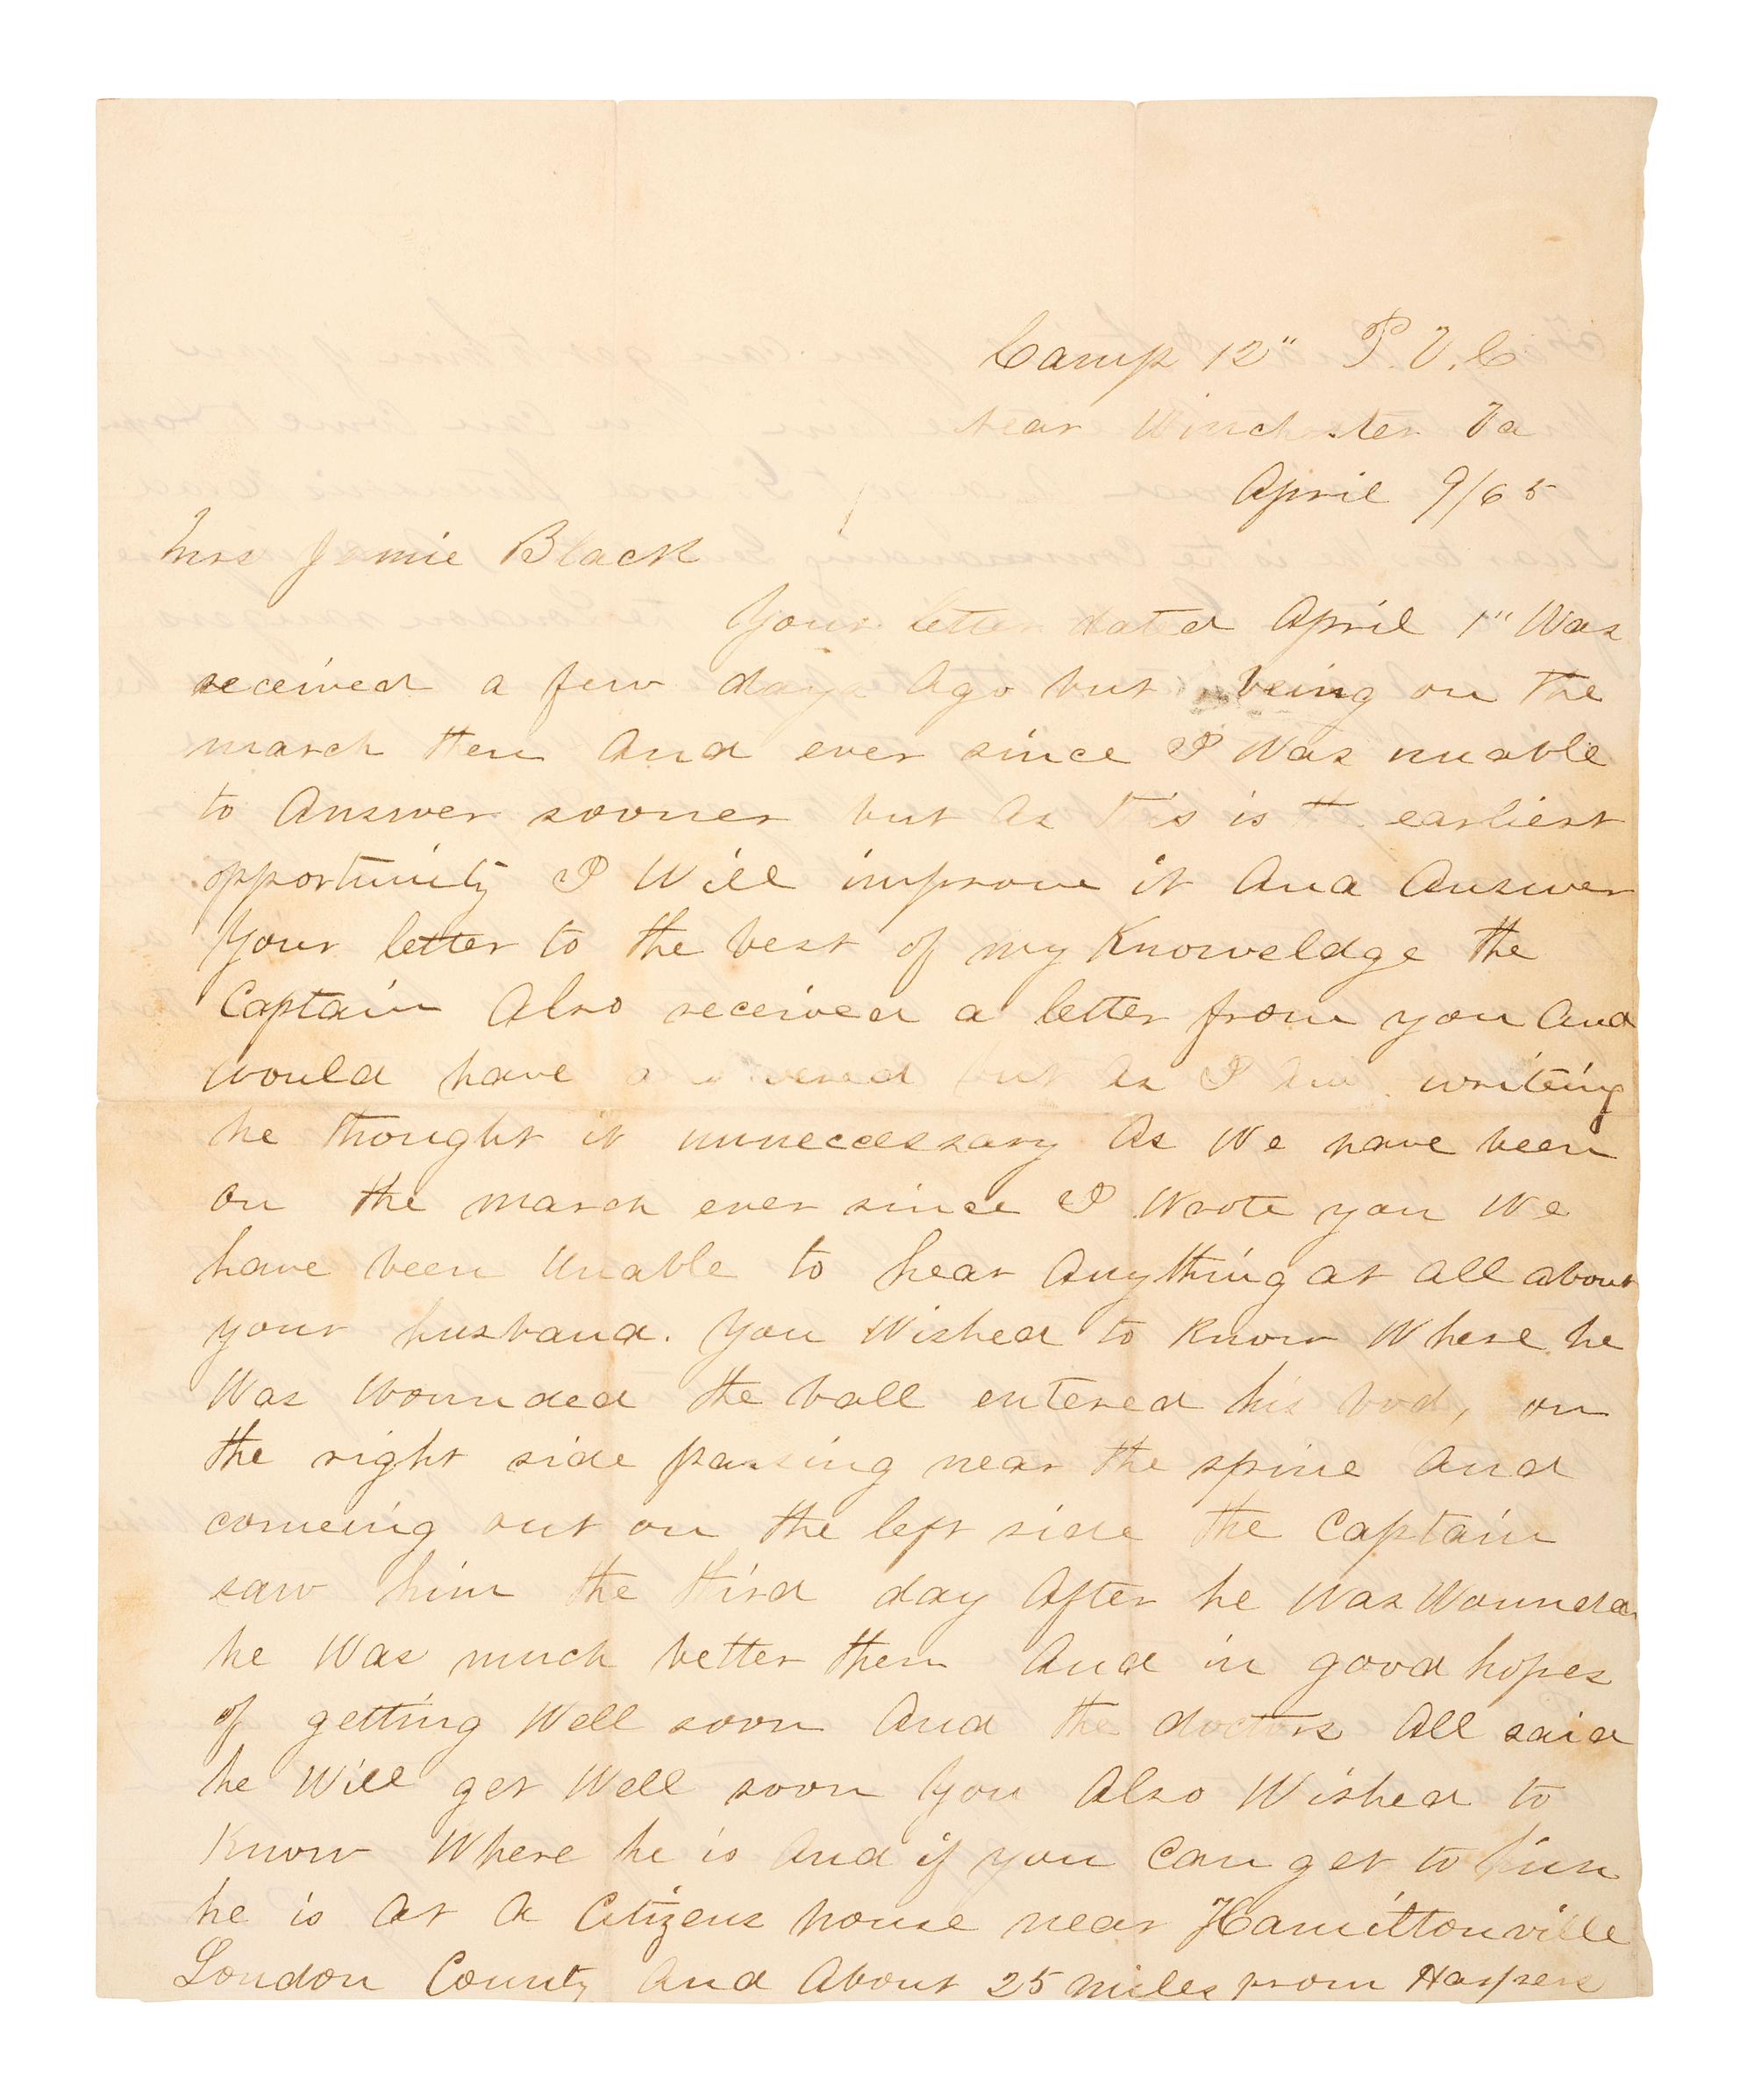 Camp 12" P.V.C
near Winchester Va
April 9/65
Mrs Jennie Black
Your letter dated April 1" Was
received a few days Ago but being on the
march then And ever since I Was unable
to Answer sooner but As This is the earliest
opportunity I Will improve it And Answer
Your letter to the best of my Knoweldge the
Captain Also received a letter from you And
would have answered but As I Am writing
he thought it unneccessary As We have been
on the march ever since I Wrote you We
have been Unable to hear Anything at All about
your husband. You Wished to Know Where he
Was Wounded the ball entered his body on
the right side passing near the spine And
comeing out on the left side the Captain
saw him the third day After he Was Wounded
he Was much better then And in good hopes
of getting Well soon And the doctors All said
he Will get Well soon You Also Wished to
Know Where he is And if you Can get to him
he is At A Citizens house near Hamiltonville
Loudon County And About 25 miles from Harpers